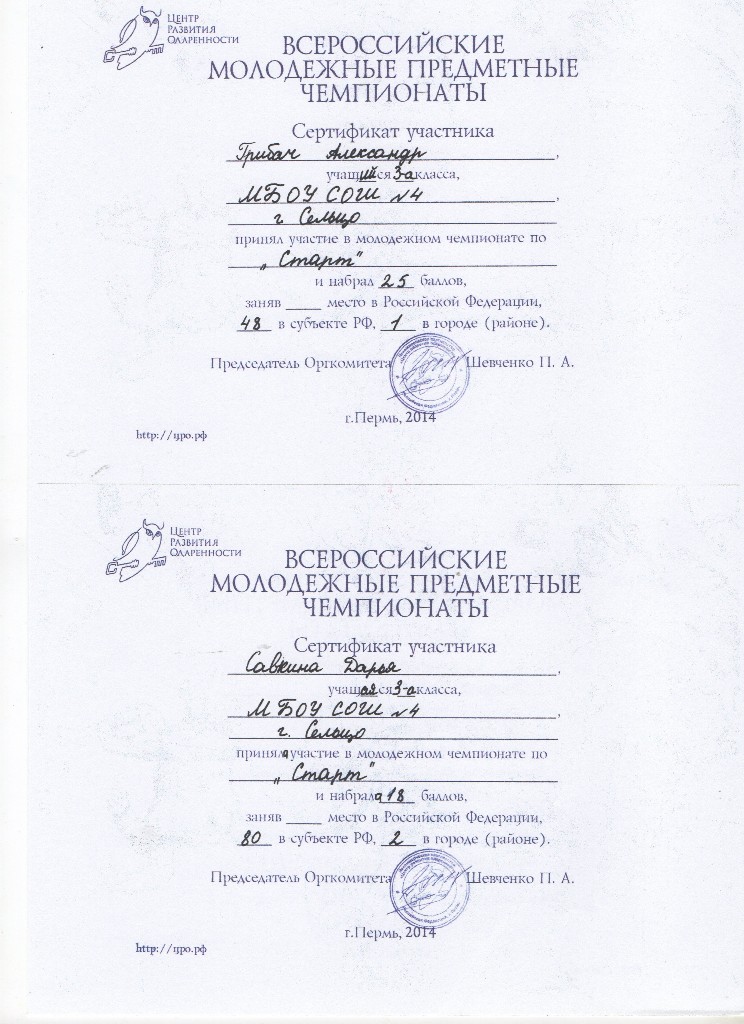 Центр
Развития
Одаренности
ВСЕРОССИЙСКИЕ
МОЛОДЕЖНЫЕ ПРЕДМЕТНЫЕ
ЧЕМПИОНАТЫ
Сертификат участника
Грибач Александр,
учащийся 3-а класса,
МБОУ СОШ №4,
г. Сельцо
принял участие в молодежном чемпионате по
„Старт"
и набрал 25 баллов,
заняв ____ место в Российской Федерации,
48 в субъекте РФ, 1 в городе (районе).
Председатель Оргкомитета Шевченко П. А.
г.Пермь, 2014
http://цро.рф
Центр
Развития
Одаренности
ВСЕРОССИЙСКИЕ
МОЛОДЕЖНЫЕ ПРЕДМЕТНЫЕ
ЧЕМПИОНАТЫ
Сертификат участника
Савкина Дарья,
учащаяся 3-а класса,
МБОУ СОШ №4,
г. Сельцо
приняла участие в молодежном чемпионате по
„Старт"
и набрала 18 баллов,
заняв ____ место в Российской Федерации,
80 в субъекте РФ, 2 в городе (районе).
Председатель Оргкомитета Шевченко П. А.
г.Пермь, 2014
http://цро.рф